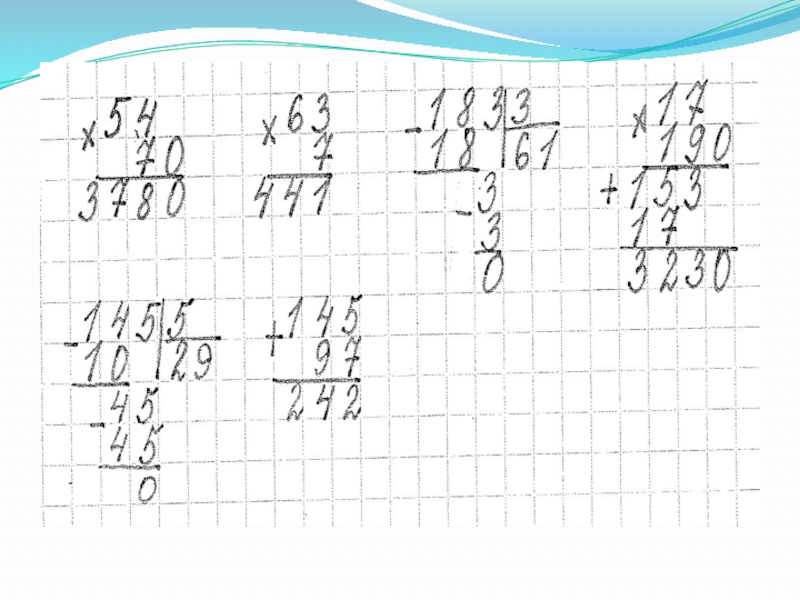 ×54
70
3780
×63
7
441
-183|3
18|61
-3
3
0
×17
190
+153
17
3230
-145|5
10|29
-45
45
0
+145
97
242